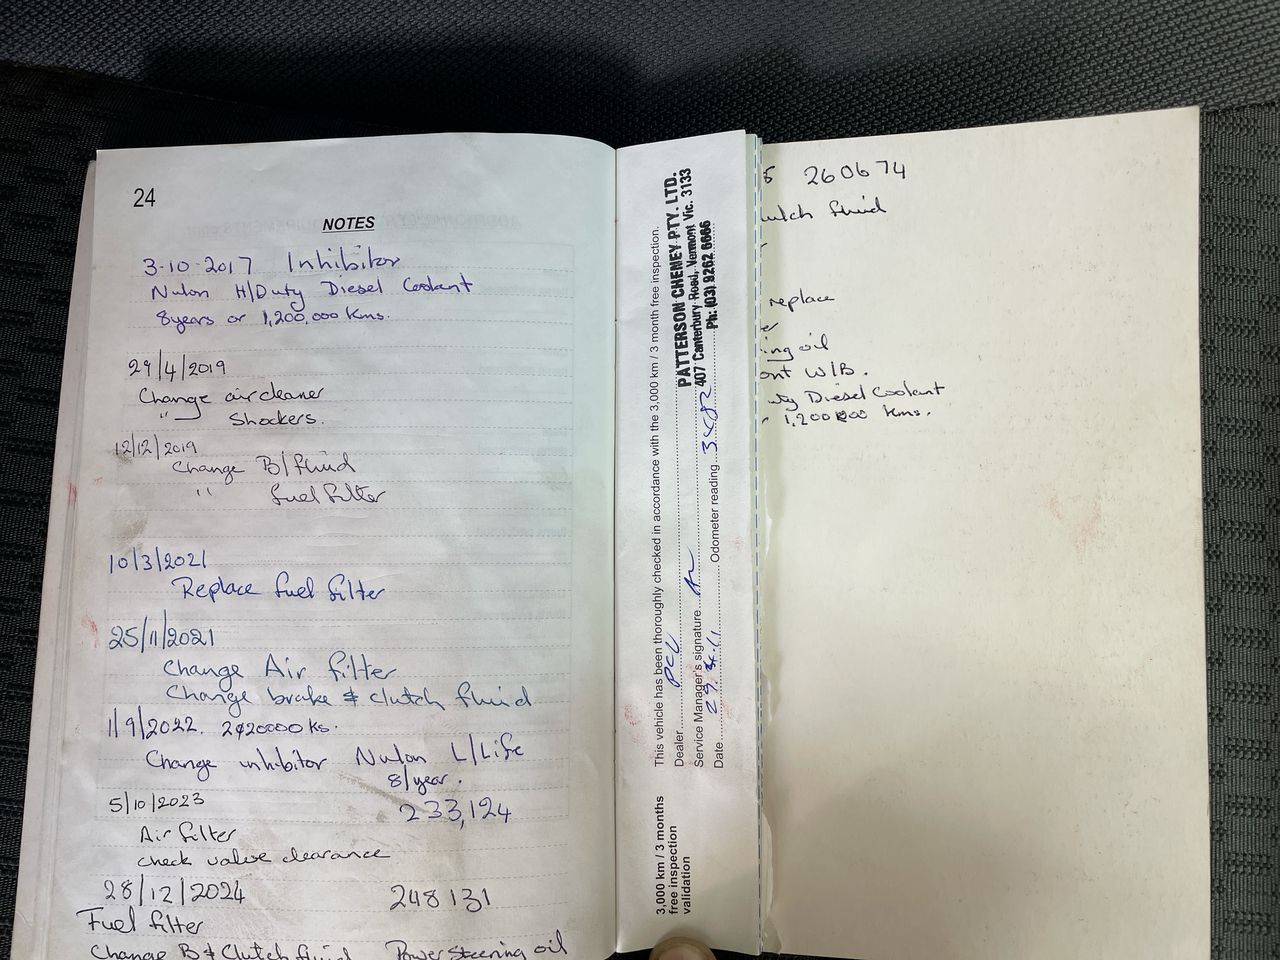 24
NOTES
3-10-2017 Inhibitor
Nulon H/Duty Diesel Coolant
8years or 1,200,000 Kms.
29/4/2019
Change aircleaner
" Shockers.
12/12/2019
Change B/fluid
" fuel filter
10/3/2021
Replace fuel filter
25/11/2021
Change Air filter
Change brake & clutch fluid
1/9/2022. 220000 Ks.
Change inhibitor Nulon L/Life
8/year.
5/10/2023 233,124
Air filter
check valve clearance
28/12/2024 248131
Fuel filter
Change B & Clutch fluid Power Steering oil
3,000 km / 3 months
free inspection
validation
This vehicle has been thoroughly checked in accordance with the 3,000 km / 3 month free inspection.
Dealer PCV
PATTERSON CHENEY PTY. LTD.
407 Canterbury Road, Vermont Vic. 3133
Ph: (03) 9262 6666
Service Manager's signature
Date Odometer reading 3482
260674
utch fluid
replace
ing oil
ont W/B.
uty Diesel Coolant
1,200000 Kms.